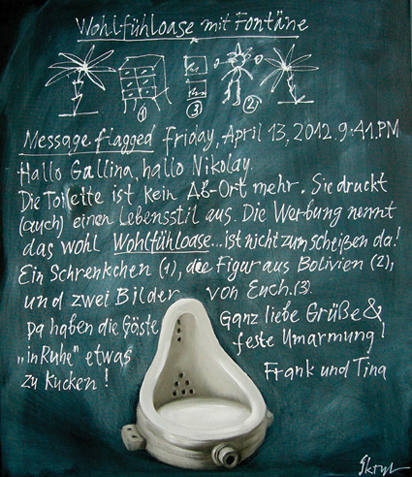 Wohlfühloase mit Fontäne
1 3 2
Message flagged Friday, April 13, 2012. 9:41.PM
Hallo Gallina, hallo Nikolay.
Die Toilette ist kein Ab-Ort mehr. Sie druckt
(auch) einen Lebensstil aus. Die Werbung nennt
das wohl Wohlfühloase... ist nicht zum scheißen da!
Ein Schrenkchen (1), die Figur aus Bolivien (2),
und zwei Bilder von Euch.(3).
Da haben die Gäste
„in Ruhe" etwas
zu kucken!
Ganz liebe Grüße &
feste Umarmung!
Frank und Tina